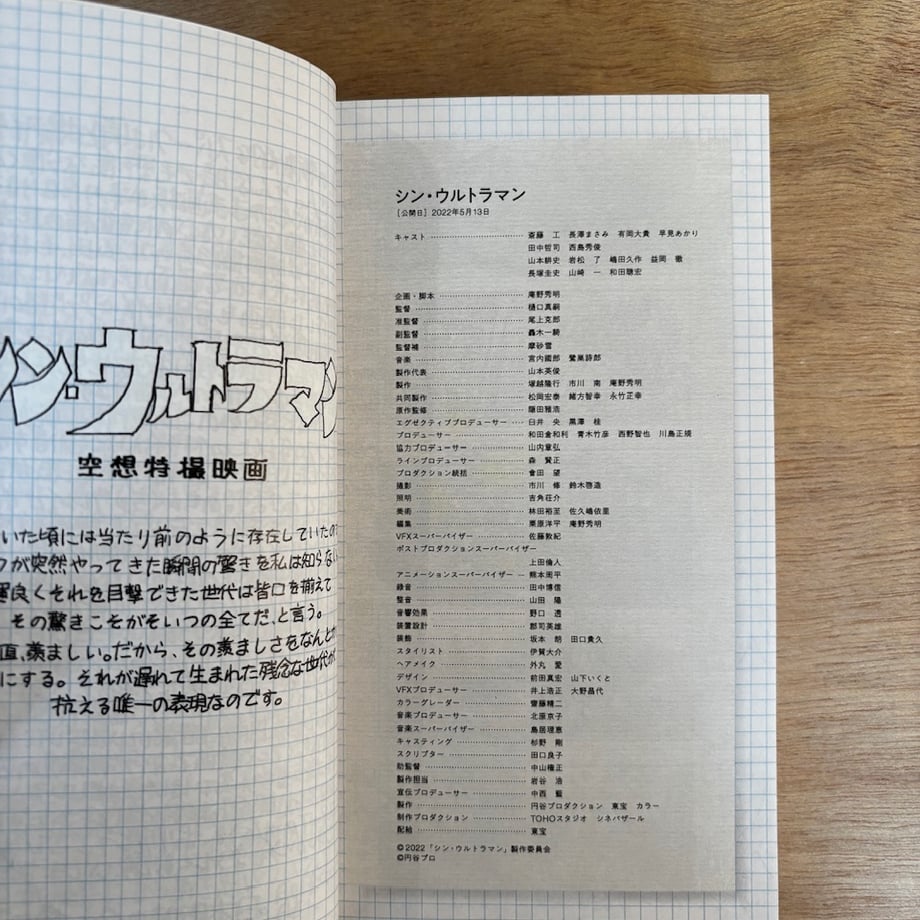 シン・ウルトラマン
空想特撮映画
いた頃には当たり前のように存在していた
が突然やってきた瞬間の驚きを私は知らない
良くそれを目撃できた世代は皆口を揃えて
その驚きこそがそいつの全てだ、と言う。
直、羨ましい。だから、その羨ましさをなんと
にする。それが遅れて生まれた残念な世代が
抗える唯一の表現なのです。
シン・ウルトラマン
［公開日］2022年5月13日
キャスト 斎藤 工 長澤まさみ 有岡大貴 早見あかり
田中哲司 西島秀俊
山本耕史 岩松 了 嶋田久作 益岡 徹
長塚圭史 山崎 一 和田聰宏
企画・脚本 庵野秀明
監督 樋口真嗣
准監督 尾上克郎
副監督 轟木一騎
監督補 摩砂雪
音楽 宮内國郎 鷺巣詩郎
製作代表 山本英俊
製作 塚越隆行 市川 南 庵野秀明
共同製作 松岡宏泰 緒方智幸 永竹正幸
原作監修 隠田雅浩
エグゼクティブプロデューサー 臼井 央 黒澤 桂
プロデューサー 和田倉和利 青木竹彦 西野智也 川島正規
協力プロデューサー 山内章弘
ラインプロデューサー 森 賢正
プロダクション統括 會田 望
撮影 市川 修 鈴木啓造
照明 吉角荘介
美術 林田裕至 佐久嶋依里
編集 栗原洋平 庵野秀明
VFXスーパーバイザー 佐藤敦紀
ポストプロダクションスーパーバイザー
上田倫人
アニメーションスーパーバイザー 熊本周平
録音 田中博信
整音 山田 陽
音響効果 野口 透
装置設計 郡司英雄
装飾 坂本 朗 田口貴久
スタイリスト 伊賀大介
ヘアメイク 外丸 愛
デザイン 前田真宏 山下いくと
VFXプロデューサー 井上浩正 大野昌代
カラーグレーダー 齋藤精二
音楽プロデューサー 北原京子
音楽スーパーバイザー 島居理恵
キャスティング 杉野 剛
スクリプター 田口良子
助監督 中山権正
製作担当 岩谷 浩
宣伝プロデューサー 中西 藍
製作 円谷プロダクション 東宝 カラー
制作プロダクション TOHOスタジオ シネバザール
配給 東宝
©2022「シン・ウルトラマン」製作委員会
©円谷プロ